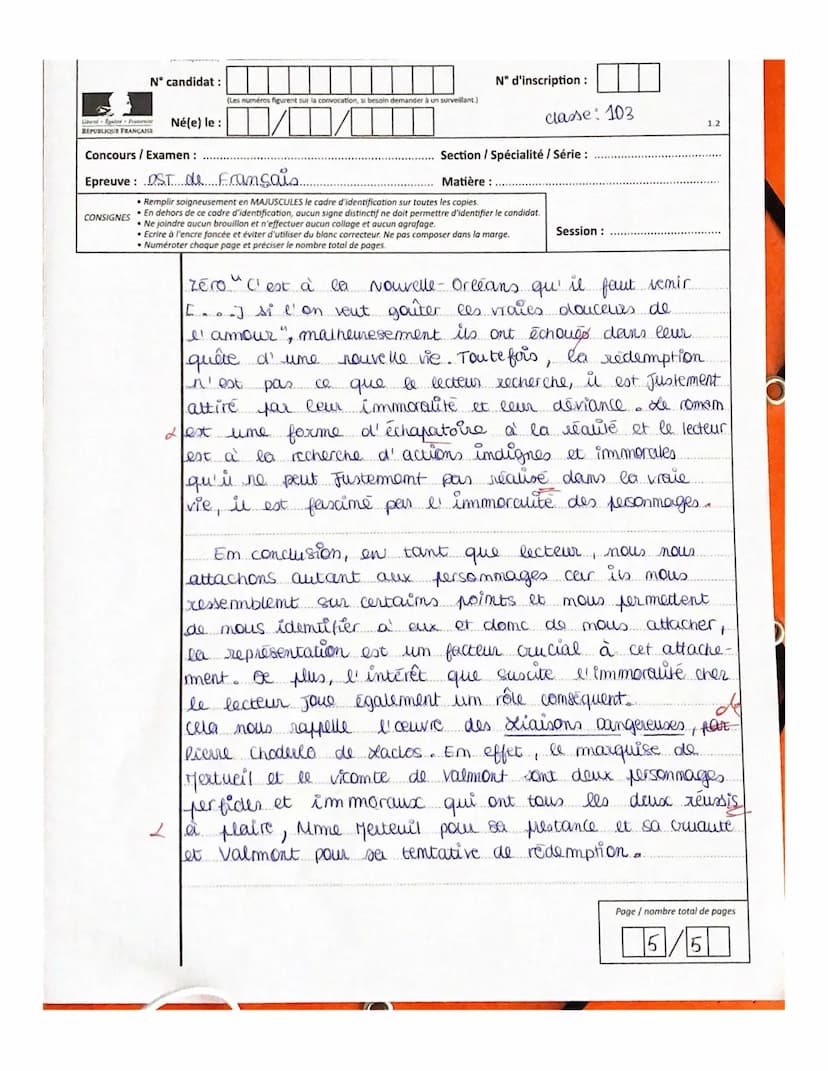 N° candidat :
N° d'inscription :
(Les numéros figurent sur la convocation, si besoin demander à un surveillant.)
Né(e) le : / /
classe : 103
1.2
Liberté • Égalité • Fraternité
RÉPUBLIQUE FRANÇAISE
Concours / Examen : Section / Spécialité / Série :
Epreuve : DST de Français Matière :
CONSIGNES
• Remplir soigneusement en MAJUSCULES le cadre d'identification sur toutes les copies.
• En dehors de ce cadre d'identification, aucun signe distinctif ne doit permettre d'identifier le candidat.
• Ne joindre aucun brouillon et n'effectuer aucun collage et aucun agrafage.
• Ecrire à l'encre foncée et éviter d'utiliser du blanc correcteur. Ne pas composer dans la marge.
• Numéroter chaque page et préciser le nombre total de pages.
Session :
zéro "C'est à la Nouvelle-Orléans qu'il faut venir
[...] si l'on veut goûter les vraies douceurs de
l'amour", malheuresement ils ont échoués dans leur
quête d'une nouvelle vie. Toutefois, la rédemption
n'est pas ce que le lecteur recherche, il est justement
attiré par leur immoralité et leur déviance. Le roman
est une forme d'échapatoire à la réalité et le lecteur
est à la recherche d'actions indignes et immorales
qu'il ne peut justement pas réalisé dans la vraie
vie, il est fasciné par l'immoralité des personnages.
En conclusion, en tant que lecteur, nous nous
attachons autant aux personnages car ils nous
ressemblent sur certains points et nous permettent
de nous identifier à eux et donc de nous attacher,
la représentation est un facteur crucial à cet attache-
ment. De plus, l'intérêt que suscite l'immoralité chez
le lecteur joue également un rôle conséquent.
de
Cela nous rappelle l'œuvre des Liaisons Dangereuses, par
Pierre Choderlo de Laclos. En effet, la marquise de
Mertueil et le vicomte de Valmont sont deux personnages
perfides et immoraux qui ont tous les deux réussis
à plaire, Mme Merteuil pour sa prestance et sa cruauté
et Valmont pour sa tentative de rédemption.
Page / nombre total de pages
5 / 5